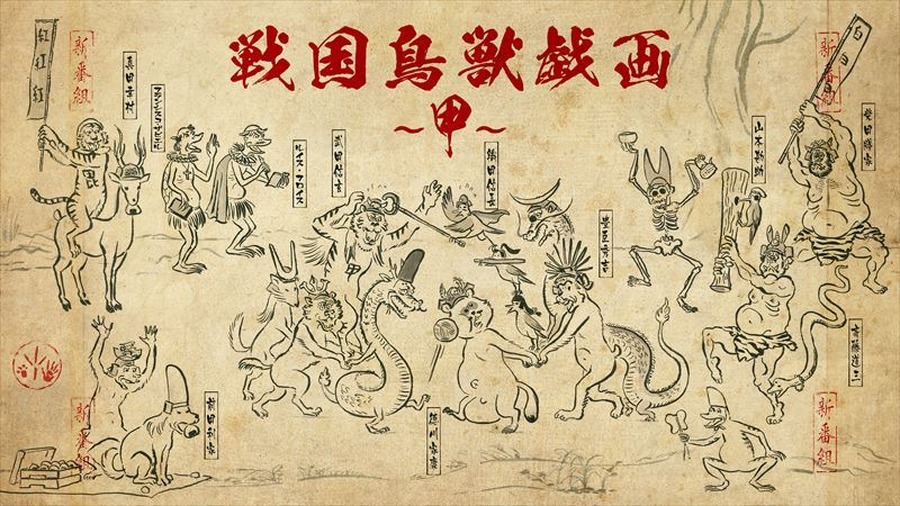 戦国鳥獣戯画
〜甲〜
新番組
新番組
紅
紅
紅
真田幸村
フランシスコ・ザビエル
ルイス・フロイス
武田信玄
織田信長
豊臣秀吉
山本勘助
柴田勝家
毘
斎藤道三
前田利家
徳川家康
新番組
新番組